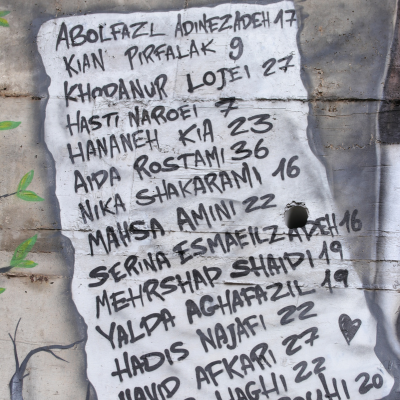 ABOLFAZL ADINEZADEH 17
KIAN PIRFALAK 9
KHODANUR LOJEI 27
HASTI NAROEI 7
HANANEH KIA 23
AIDA ROSTAMI 36
NIKA SHAKARAMI 16
MAHSA AMINI 22
SERINA ESMAEILZADEH 16
MEHRSHAD SHAIDI 19
YALDA AGHAFAZLI 19
HADIS NAJAFI 22
NAVID AFKARI 27
HAGHI 22
20